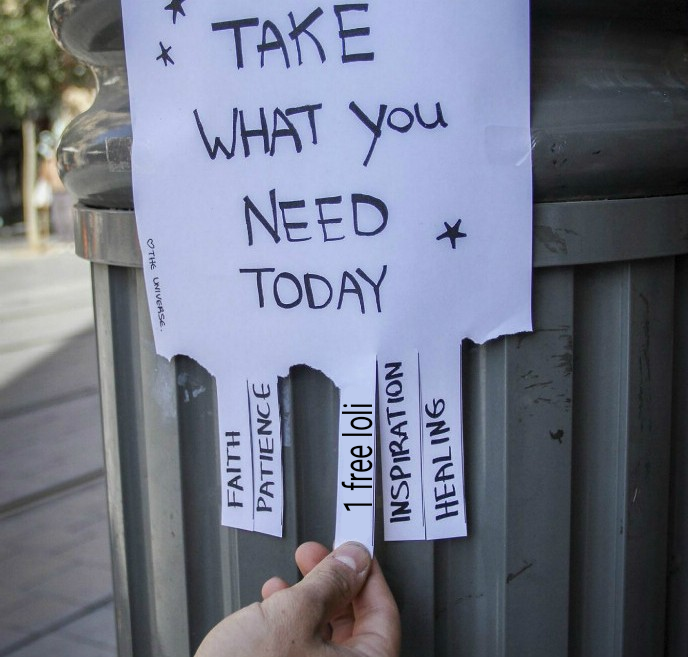 TAKE
WHAT You
NEED
TODAY
♡THE UNIVERSE.
FAITH
PATIENCE
1 free loli
INSPIRATION
HEALING